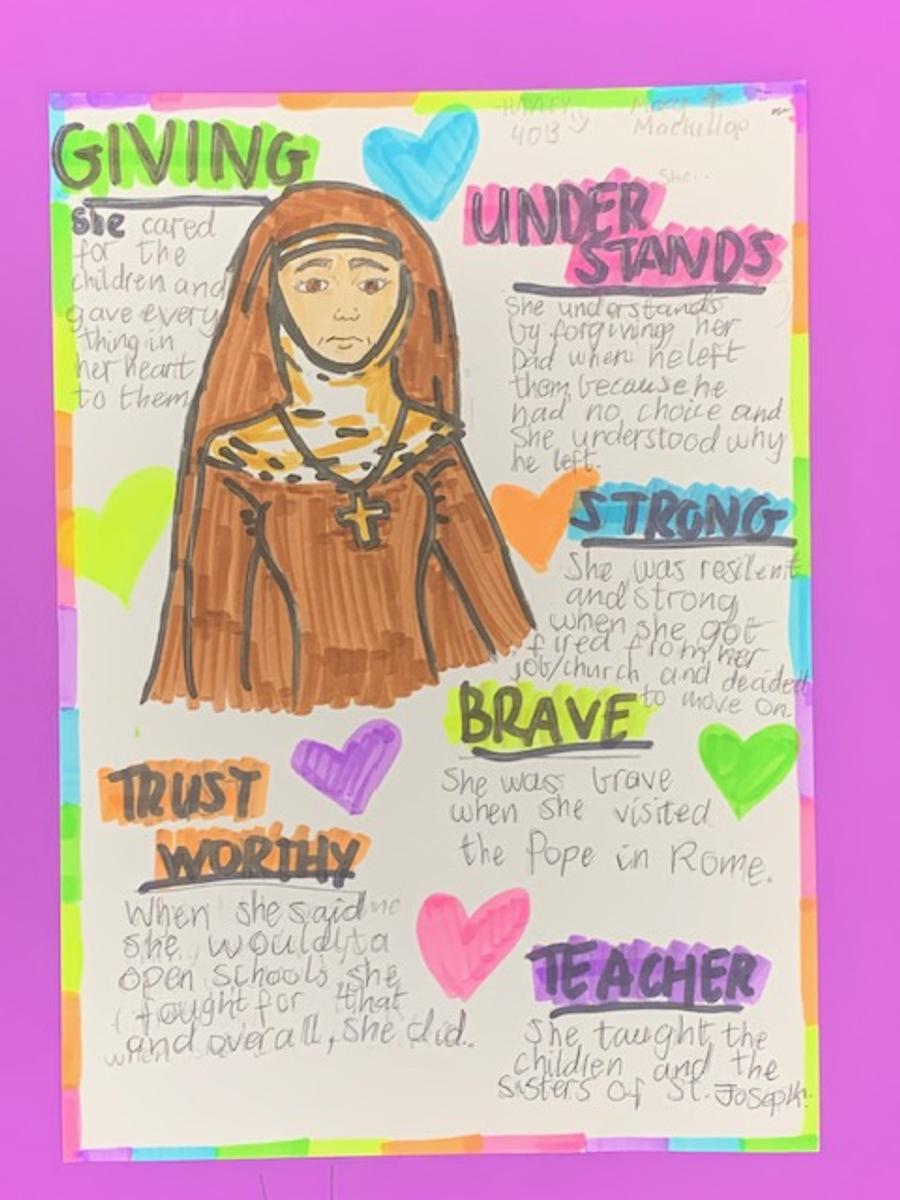 GIVING
She cared
for the
children and
gave every
thing in
her heart
to them
4OB
Mary
Mackillop
She...
UNDER
STANDS
She understands
by forgiving her
Dad when he left
them, because he
had no choice and
She understood why
he left.
STRONG
She was resilent
and strong
when she got
fired from her
job/church and decided
to move on.
BRAVE
She was brave
when she visited
the Pope in Rome.
TRUST
WORTHY
When she said
she would
open schools she
fought for that
and overall, she did.
TEACHER
She taught the
children and the
Sisters of St. Joseph.